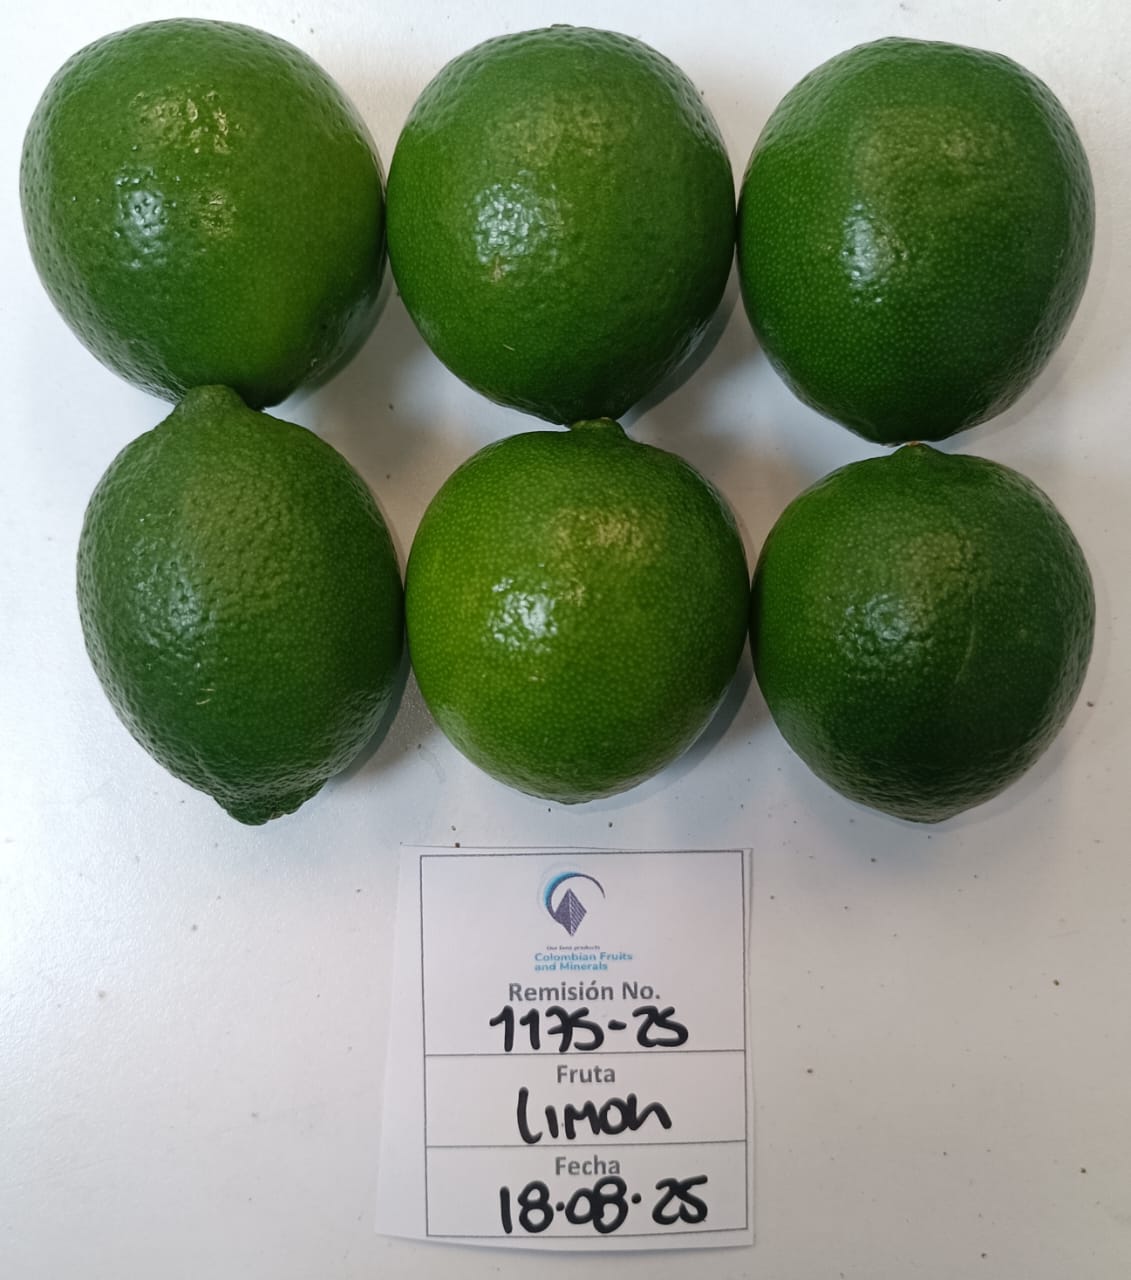 Our best products
Colombian Fruits
and Minerals
Remisión No.
1175-25
Fruta
LIMON
Fecha
18.08.25